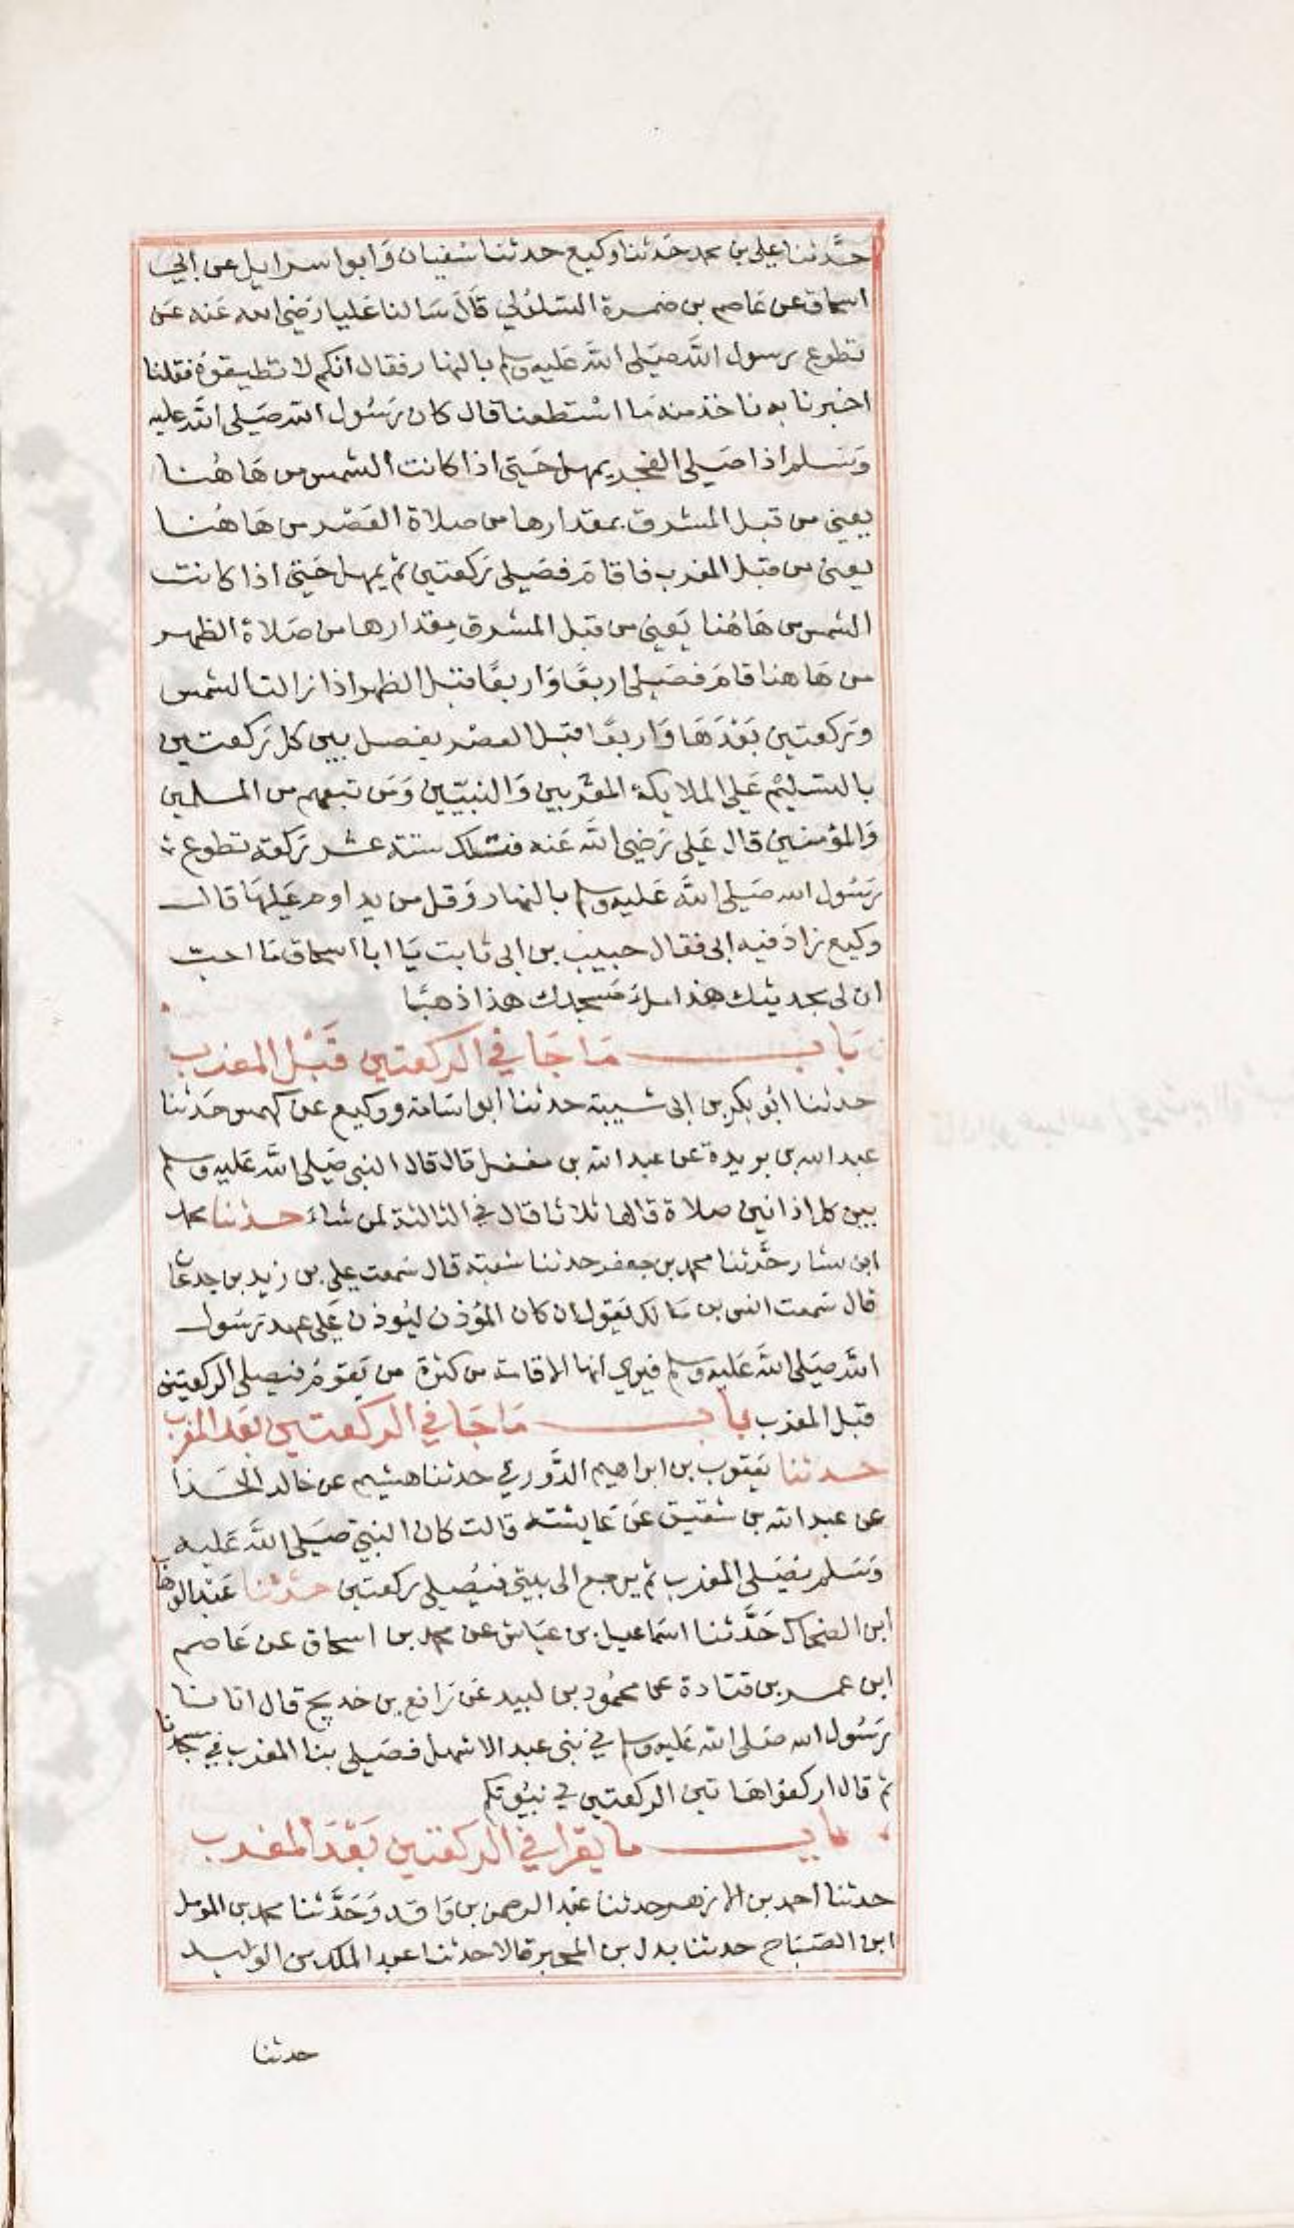 حدَّثنا علي بن محمد حَدثنا وكيع حدثنا سفيان وَابوا سرايل عن ابي
اسحاق عن عَاصم بن ضمرة السَّلُولي قَالَ سَالنا عَليا رَضيَ الله عَنه عَن
تطوع رسول اللَّه صَلى اللَّه عَليه وسلم بالنهار فقال انكم لا تطيقوهُ فقلنا
اخبرنا به ناخذ منه مَا اسْتطعنا قال كان رَسُول الله صَلى اللَّه عليه
وَسَلم اذا صَلى الفجر يمهل حَتى اذا كانت الشمس من هَا هُنا
يعني من قبل المشرق بمقدارها من صلاة العَصْر من هَا هُنا
يعنى من قبل المغرب فاقامَ فصَلى رَكعتين ثم يمهل حَتى اذا كانت
الشمس من هَا هُنا يَعني من قبل المشرق مِقدارها من صَلاة الظهر
من هَا هنا قامَ فصَلى اربعًا وَاربعًا قبل الظهر اذا زالت الشمس
وَركعتين بَعْدَهَا وَاربعًا قبل العصْر يفصل بين كل رَكعتين
بالتسليْم عَلى الملايكة المقربين وَالنبيّين وَمَن تبعهم من المسلمين
وَالمؤمنين قال عَلي رَضي اللَّه عَنه فتلك ستة عشر رَكعة تطوع
رَسُول الله صَلى اللَّه عَليه وسلم بالنهار وَقل من يداوم عَليهَا قال
وكيع زادَ فيه ابى فقال حبيب بن ابى ثابت يَا ابا اسحاق مَا احبّ
ان لى بحديثك هذا ملءَ مَسجدك هذا ذهبًا
بَاب مَا جَا في الركعتين قَبْل المغرب
حدثنا ابُو بكر بن ابى شيبة حدثنا ابو اسَامة ووكيع عن كهمس حَدثنا
عبد الله بن بريدة عن عبد الله بن مغفل قال قال النبى صَلى اللَّه عَليه وسلم
بين كل اذانين صلاة قالها ثلاثا قال في الثالثة لمن شاءَ حدثنا محمد
ابن بشار حدَّثنا محمد بن جعفر حدثنا شعبة قال سَمعت علي بن زيد بن جدعان
قال سَمعت انس بن مَالك يَقول ان كان المؤذن ليُوذن عَلى عهد رَسُول
اللَّه صَلى اللَّه عَليه وسلم فيرى انها الاقامة من كثرة من يَقومُ فيصلى الركعتين
قبل المغرب باب مَا جَا في الركعتين بعَد المغرب
حدثنا يَعقوب بن ابراهيم الدَّورقي حدثنا هشيم عن خالد الحَذا
عن عبد الله بن شقيق عَن عَايشة قالت كان النبيّ صَلى اللَّه عَليه
وَسَلم يصَلى المغرب ثم يرجع الى بيتى فيُصلى ركعتين حدَّثنا عَبْد الوهاب
ابن الضحاك حَدَّثنا اسماعيل بن عيَاش عن محمد بن اسحاق عن عَاصم
ابن عمر بن قتادة عن محمُود بن لبيد عَن رَافع بن خديج قال اتانا
رَسُول الله صَلى الله عَليه وسلم في بَنى عبد الاشهل فصَلى بنا المغرب في مسجدنا
ثم قال اركعوا هَاتين الركعتين في بيُوتكم
باب ما يقرا في الركعتين بَعْدَ المغرب
حدثنا احمد بن الازهر حدثنا عَبد الرحمن بن وَاقد وَحَدَّثنا محمد بن المومل
ابن الصَّبَاح حدثنا بدل بن المحبر قالا حدثنا عبد الملك بن الوليد
حدثنا